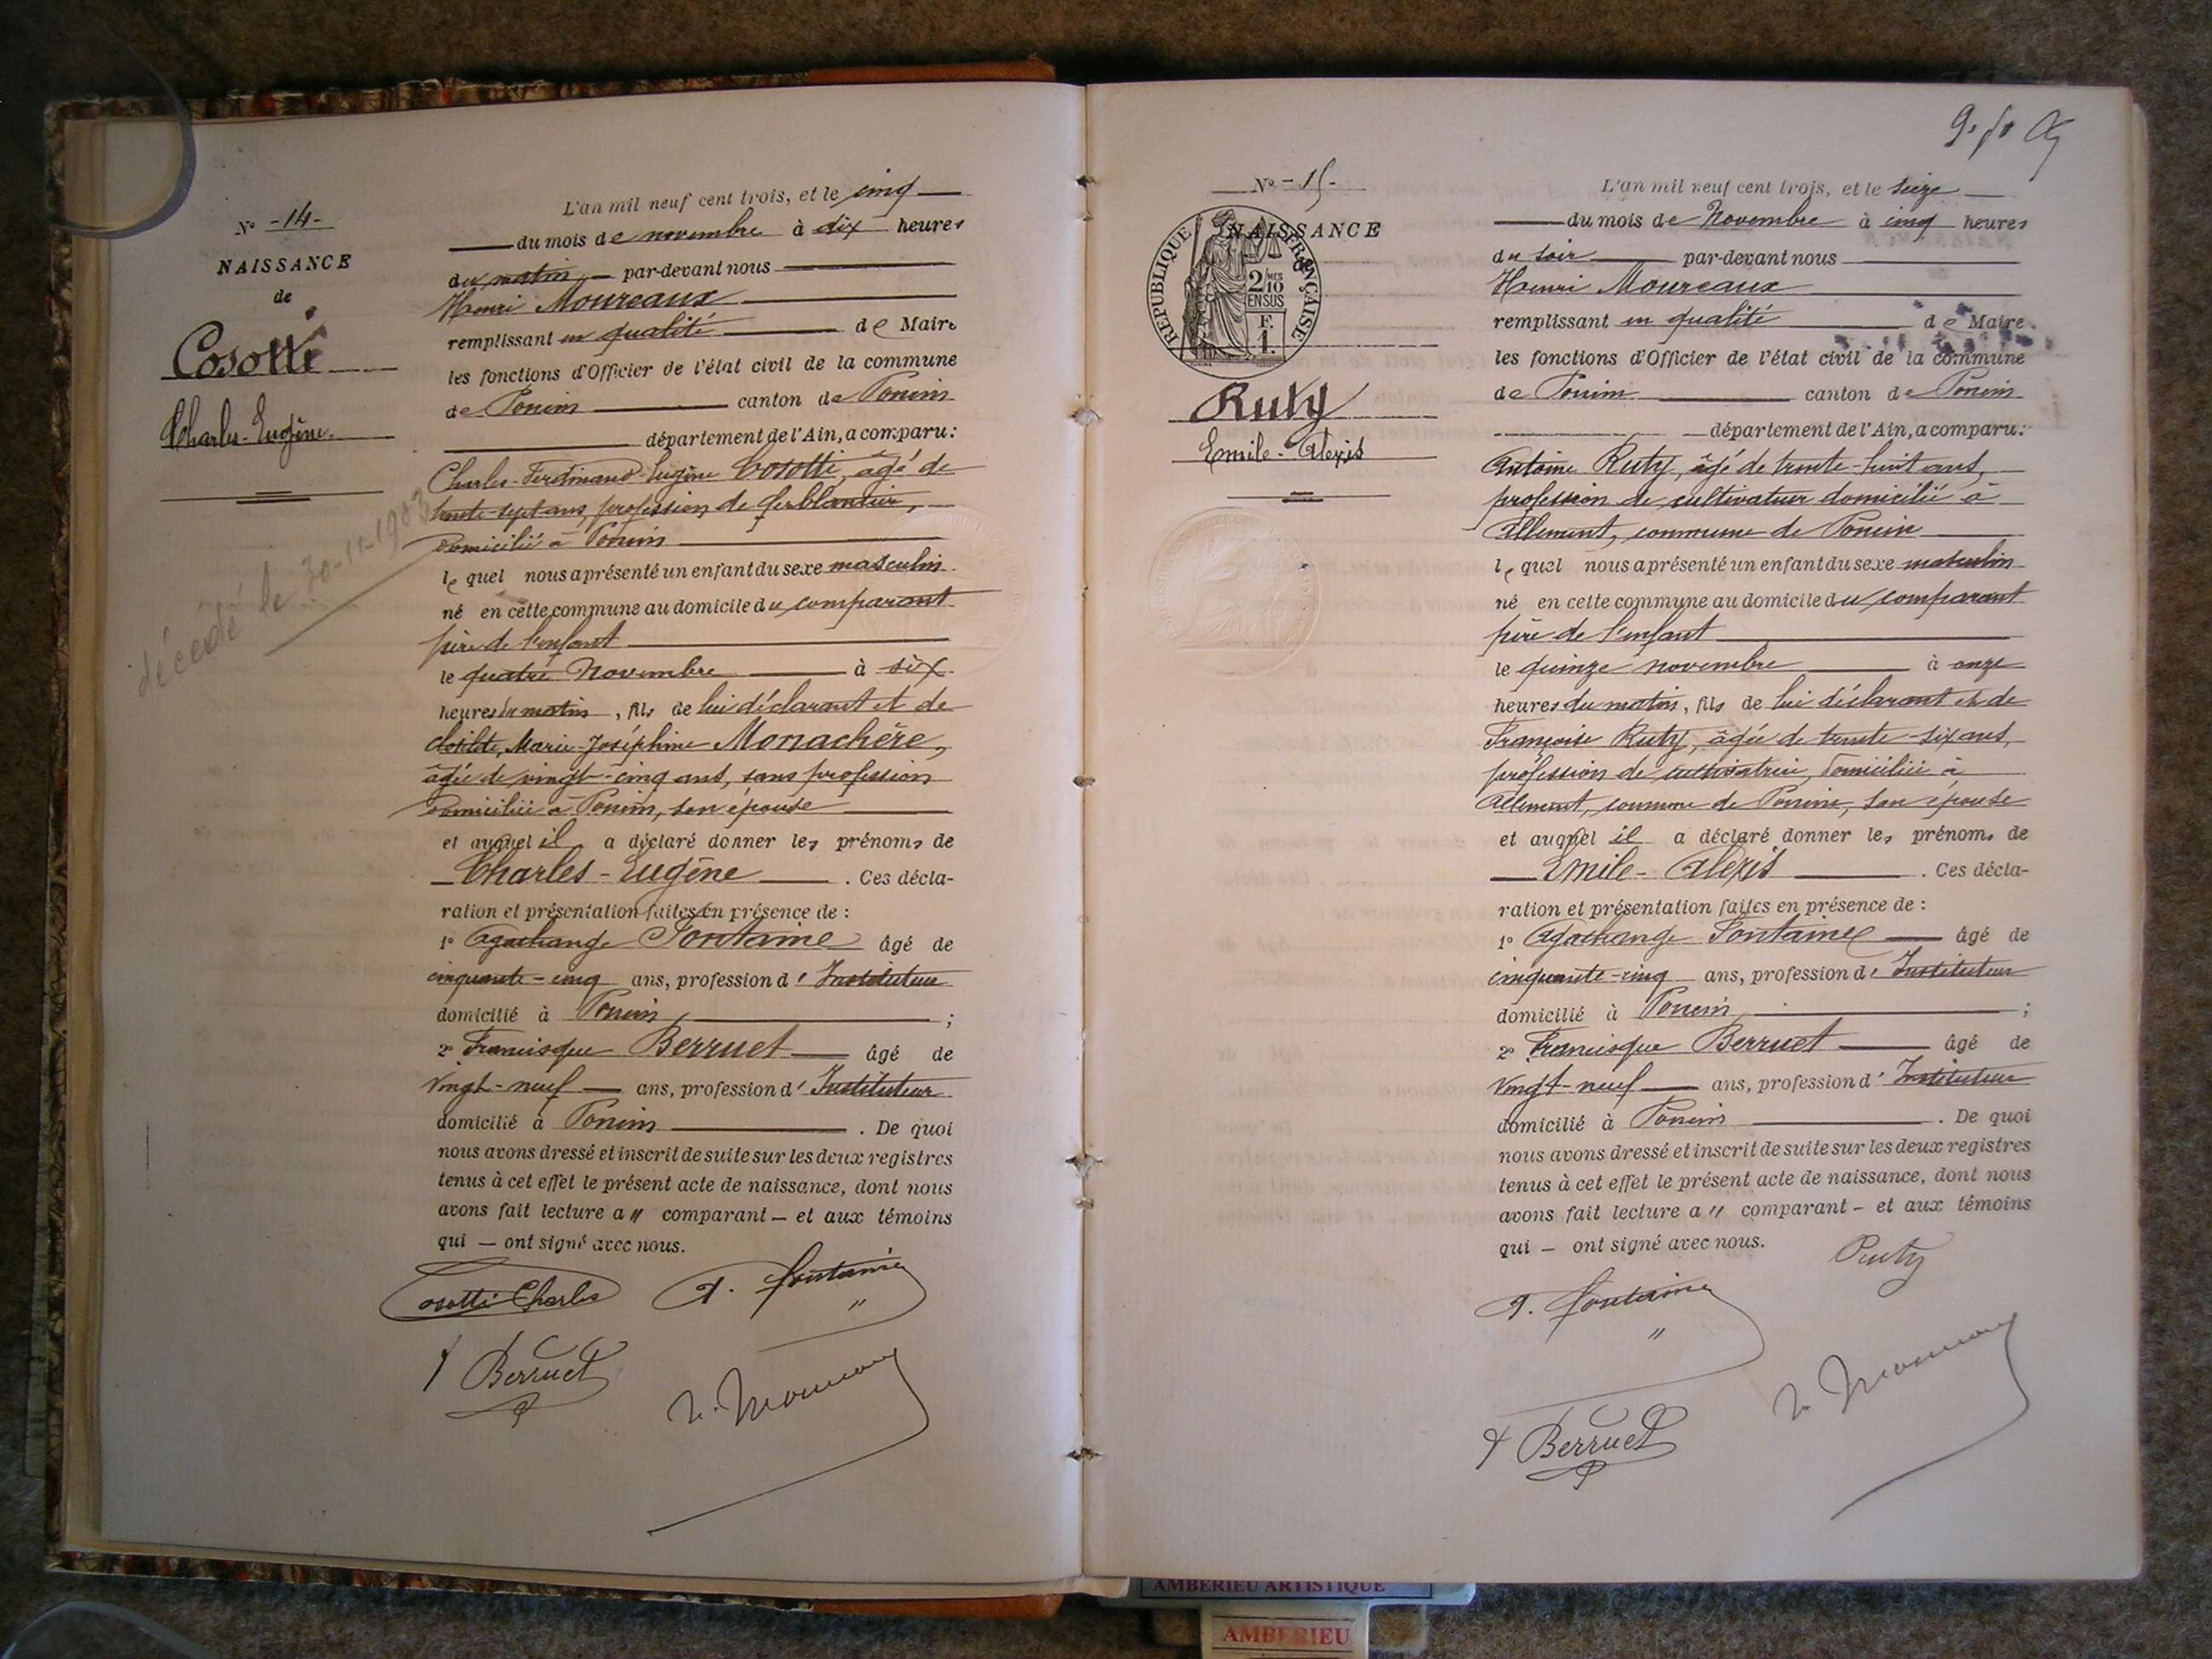 N° -14-
NAISSANCE
de
Cosotti
Charles-Eugène.
décédé le 30-11-1903
L'an mil neuf cent trois, et le cinq
du mois de novembre à dix heures
du matin par-devant nous
Henri Moureaux
remplissant en qualité de Maire
les fonctions d'Officier de l'état civil de la commune
de Poncin canton de Poncin
département de l'Ain, a comparu:
Charles-Ferdinand-Eugène Cosotti, âgé de
trente-sept ans, profession de ferblantier,
domicilié à Poncin
lequel nous a présenté un enfant du sexe masculin.
né en cette commune au domicile du comparant
père de l'enfant
le quatre Novembre à six
heures du matin, fils de lui déclarant et de
Clotilde, Marie-Joséphine Monachère,
âgée de vingt-cinq ans, sans profession
domiciliée à Poncin, son épouse
et auquel il a déclaré donner les prénoms de
Charles-Eugène. Ces décla-
ration et présentation faites en présence de :
1° Agathange Fontaine âgé de
cinquante-cinq ans, profession d'Instituteur
domicilié à Poncin ;
2° Francisque Berruet âgé de
vingt-neuf ans, profession d'Instituteur
domicilié à Poncin. De quoi
nous avons dressé et inscrit de suite sur les deux registres
tenus à cet effet le présent acte de naissance, dont nous
avons fait lecture a " comparant – et aux témoins
qui — ont signé avec nous.
Cosotti Charles A. Fontaine
F Berruet H. Moureaux
N° -15-
NAISSANCE
RÉPUBLIQUE FRANÇAISE
2/10 MES
EN SUS
F.
1.
Ruty
Emile-Alexis
L'an mil neuf cent trois, et le seize
du mois de Novembre à cinq heures
du soir par-devant nous
Henri Moureaux
remplissant en qualité de Maire
les fonctions d'Officier de l'état civil de la commune
de Poncin canton de Poncin
département de l'Ain, a comparu:
Antoine Ruty, âgé de trente-huit ans,
profession de cultivateur domicilié à
Allement, commune de Poncin
lequel nous a présenté un enfant du sexe masculin
né en cette commune au domicile du comparant
père de l'enfant
le quinze novembre à onze
heures du matin, fils de lui déclarant et de
Françoise Ruty, âgée de trente-six ans,
profession de cultivatrice, domiciliée à
Allement, commune de Poncin, son épouse
et auquel il a déclaré donner les prénoms de
Emile-Alexis. Ces décla-
ration et présentation faites en présence de :
1° Agathange Fontaine âgé de
cinquante-cinq ans, profession d'Instituteur
domicilié à Poncin ;
2° Francisque Berruet âgé de
vingt-neuf ans, profession d'Instituteur
domicilié à Poncin. De quoi
nous avons dressé et inscrit de suite sur les deux registres
tenus à cet effet le présent acte de naissance, dont nous
avons fait lecture a " comparant – et aux témoins
qui – ont signé avec nous.
Ruty
A. Fontaine
H. Moureaux
F Berruet
AMBERIEU ARTISTIQUE
AMBERIEU